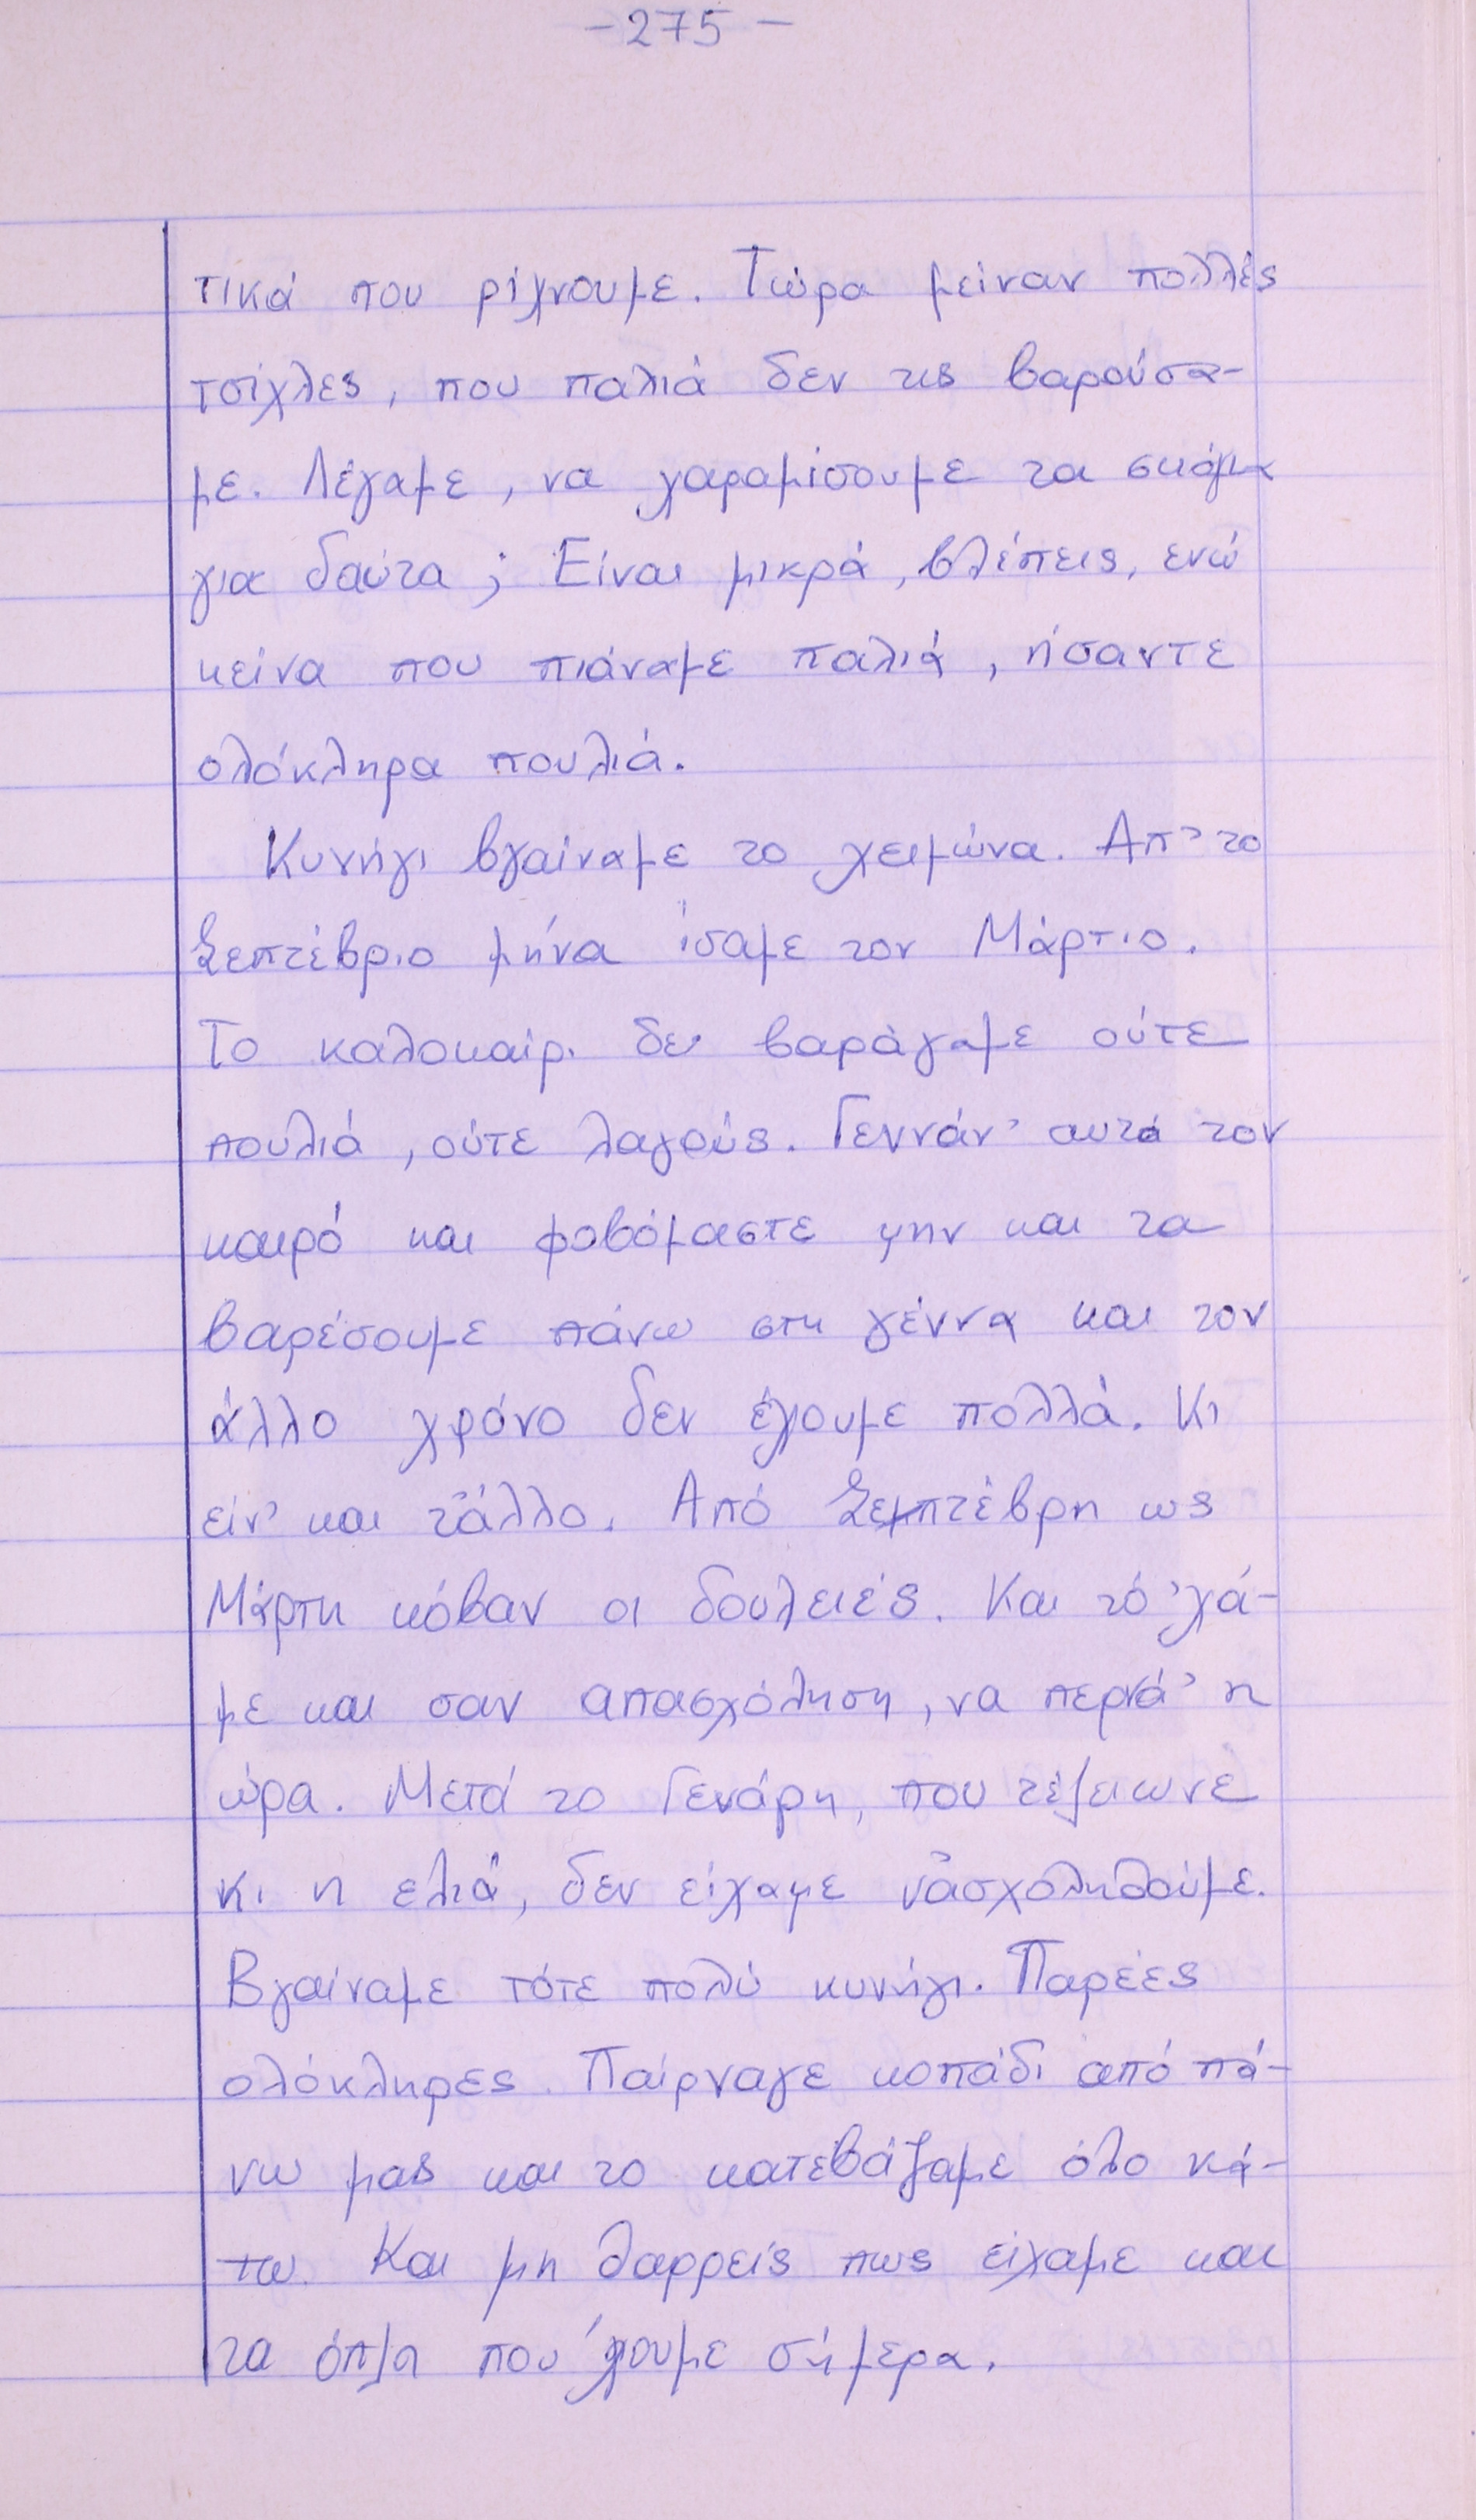 -275-
τικά που ρίχνουμε. Τώρα μείναν πολλές
τσίχλες, που παλιά δεν τις βαρούσα-
με. Λέγαμε, να χαραμίσουμε τα σκάγια
για δαύτα; Είναι μικρά, βλέπεις, ενώ
κείνα που πιάναμε παλιά, ήσαντε
ολόκληρα πουλιά.
Κυνήγι βγαίναμε το χειμώνα. Απ' το
Σεπτέβριο μήνα ίσαμε τον Μάρτιο.
Το καλοκαίρι δε βαράγαμε ούτε
πουλιά, ούτε λαγούς. Γεννάν' αυτά τον
καιρό και φοβόμαστε μην και τα
βαρέσουμε πάνω στη γέννα και τον
άλλο χρόνο δεν έχουμε πολλά. Κι
είν' και τ'άλλο. Από Σεπτέβρη ως
Μάρτη κόβαν οι δουλειές. Και τό 'χά-
με και σαν απασχόληση, να περνά' η
ώρα. Μετά το Γενάρη, που τέλειωνε
κι η ελιά, δεν είχαμε ν'ασχοληθούμε.
Βγαίναμε τότε πολύ κυνήγι. Παρέες
ολόκληρες. Παίρναγε κοπάδι από πά-
νω μας και το κατεβάζαμε όλο κά-
τω. Και μη θαρρείς πως είχαμε και
τα όπλα που 'χουμε σήμερα.